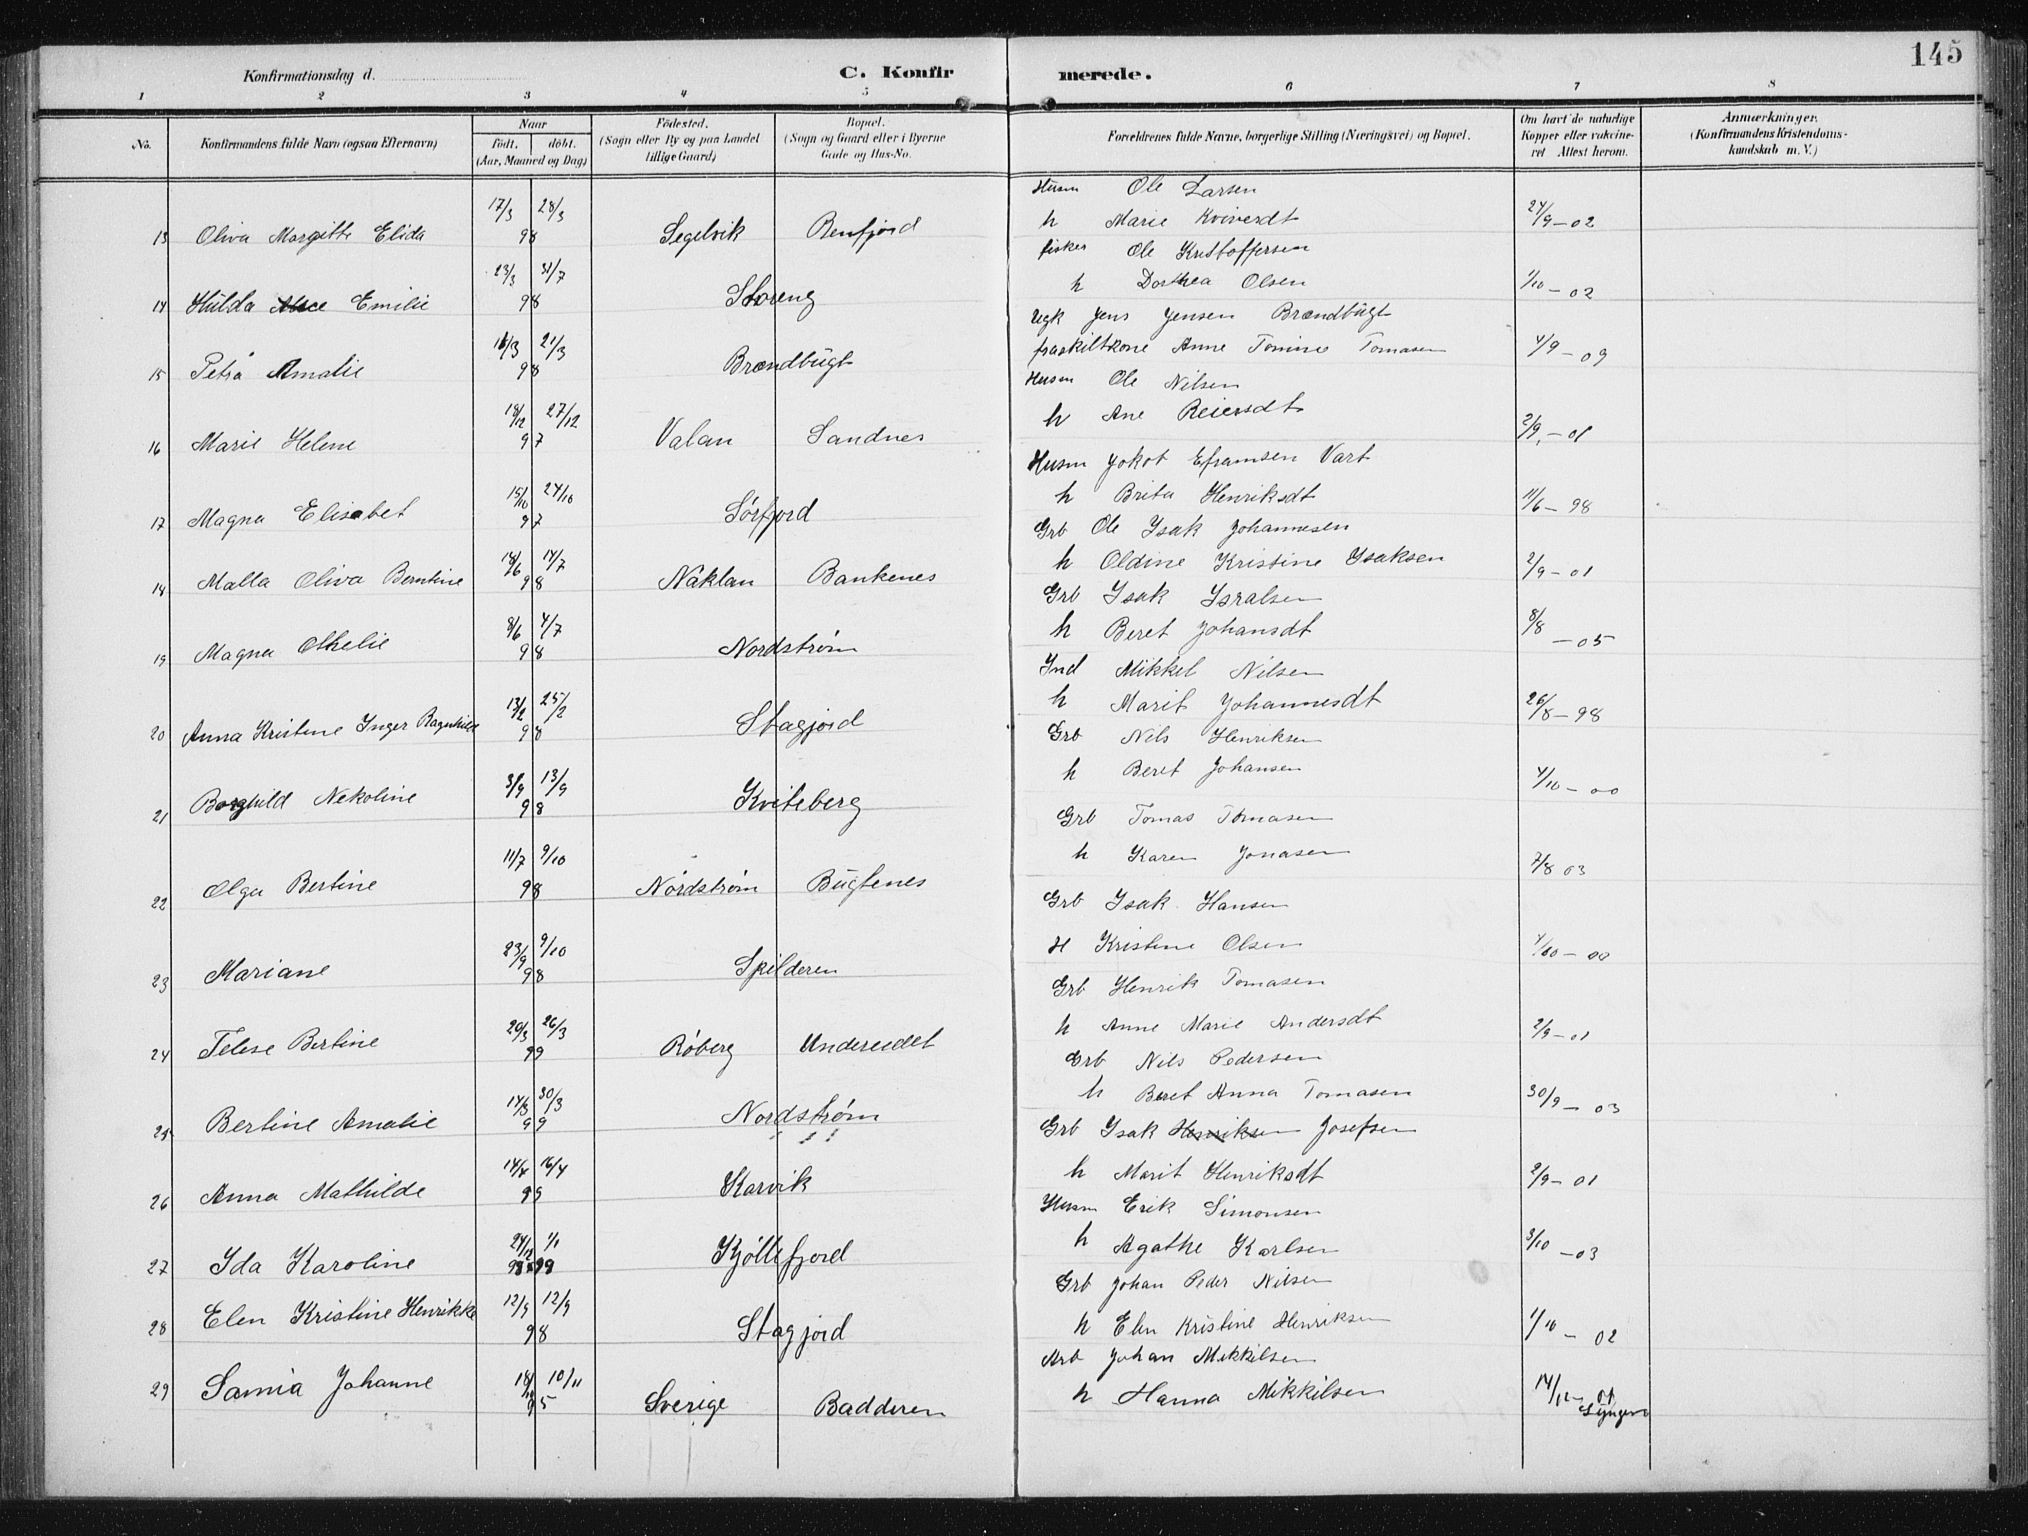 145
Konfirmationsdag d.
C. Konfirmerede.
1 2 3 4 5 6 7 8
No.
Konfirmandens fulde Navn (ogsaa Efternavn)
Naar
Født. døbt.
(Aar, Maaned og Dag)
Fødested.
(Sogn eller By og paa Landet
tillige Gaard)
Bopæl.
(Sogn og Gaard eller i Byerne
Gade og Hus-No.
Forældrenes fulde Navne, borgerlige Stilling (Næringsvei) og Bopæl.
Om havt de naturlige
Kopper eller vakcineret
Attest herom.
Anmærkninger.
(Konfirmandens Kristendomskundskab
m. V.)
13 Oliva Margitte Elida 17/3 28/3 98 Segelvik Renfjord
Husm Ole Larsen
h Marie Kviverdt 24/9-02
14 Hulda Emilie 23/3 31/7 98 Storeng
fisker Ole Kristoffersen
h Dorthea Olsen 1/10-02
15 Petra Amalie 16/3 21/3 98 Brændbugt
Ugk Jens Jensen Brændbugt
fraskilt kone Anne Tomine Tomasen 4/9-09
16 Marie Helene 18/12 27/12 97 Valan Sandnes
Husm Ole Nilsen
h Ane Reiersdt 2/9-01
17 Magna Elisabet 15/10 24/10 97 Sørfjord
Husm Jakob Eframsen Vart
h Brita Henriksdt 11/6-98
14 Malla Oliva Berntine 14/6 14/7 98 Naklan Bankenes
Grb Ole Isak Johannesen
h Oldine Kristine Isaksen 2/9-01
19 Magna Othelie 8/6 4/7 98 Nordstrøm
Grb Isak Isralsen
h Beret Johansdt 8/8-05
20 Anna Kristine Inger Ragnhild 13/2 25/2 98 Stagjord
Ind Mikkel Nilsen
h Marit Johannesdt 26/8-98
21 Borghild Nekoline 3/9 13/9 98 Kviteberg
Grb Nils Henriksen
h Beret Johansen 4/10-00
22 Olga Bertine 11/7 9/10 98 Nordstrøm Bugtenes
Grb Tomas Tomasen
h Karen Jonasen 7/8 03
23 Mariane 23/9 9/10 98 Spilderen
Grb Isak Hansen
H Kristine Olsen 4/10-00
24 Telese Bertine 20/3 26/3 99 Røberg Undereidet
Grb Henrik Tomasen
h Anne Marie Andersdt 2/9-01
25 Bertine Amalie 14/3 30/3 99 Nordstrøm
Grb Nils Pedersen
h Beret Anna Tomasen 30/9-03
26 Anna Mathilde 14/4 16/4 99 Karvik
Grb Isak Henriksen Josefsen
h Marit Henriksdt 2/9-01
27 Ida Karoline 24/12 1/1 98 99 Kjøllefjord
Husm Erik Simonsen
h Agathe Karlsen 3/10-03
28 Elen Kristine Henrikke 12/9 12/9 98 Stagjord
Grb Johan Peder Nilsen
h Elen Kristine Henriksen 1/10-02
29 Samia Johanne 18/10 10/11 95 Sverige Badderen
Arb Johan Mikkilsen
h Hanna Mikkilsen 14/12-01
Lyngen